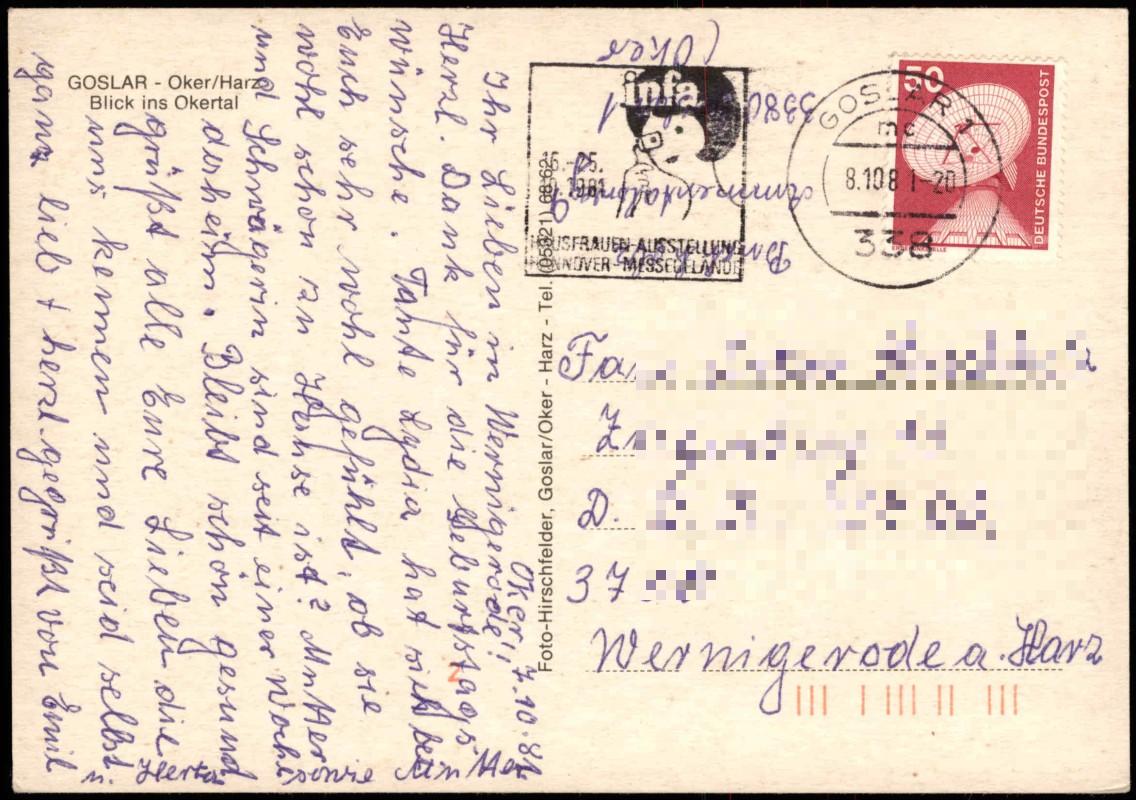 GOSLAR - Oker/Harz
Blick ins Okertal
Oker, 7.10.81
Ihr Lieben in Wernigerode!
Herzl. Dank für die Geburtstags-
wünsche. Tante Lydia hat sich bei
Euch sehr wohl gefühlt, ob sie
wohl schon zu Hause ist? Mutter sowie
und Schwägerin sind seit einer Woche
daheim. Bleibt schön gesund
grüßt alle Eure Lieben die
uns kennen und seid selbst
ganz lieb + herzl. gegrüßt von Emil
u. Herta
Foto-Hirschfelder, Goslar/Oker - Harz - Tel. (05321) 68 62
3380
Oker
infa
1981
HAUSFRAUEN-AUSSTELLUNG
HANNOVER-MESSEGELÄNDE
GOSLAR 1
mc
8.10.81-20
338
50
DEUTSCHE BUNDESPOST
Fa
D.
37
Wernigerode a. Harz